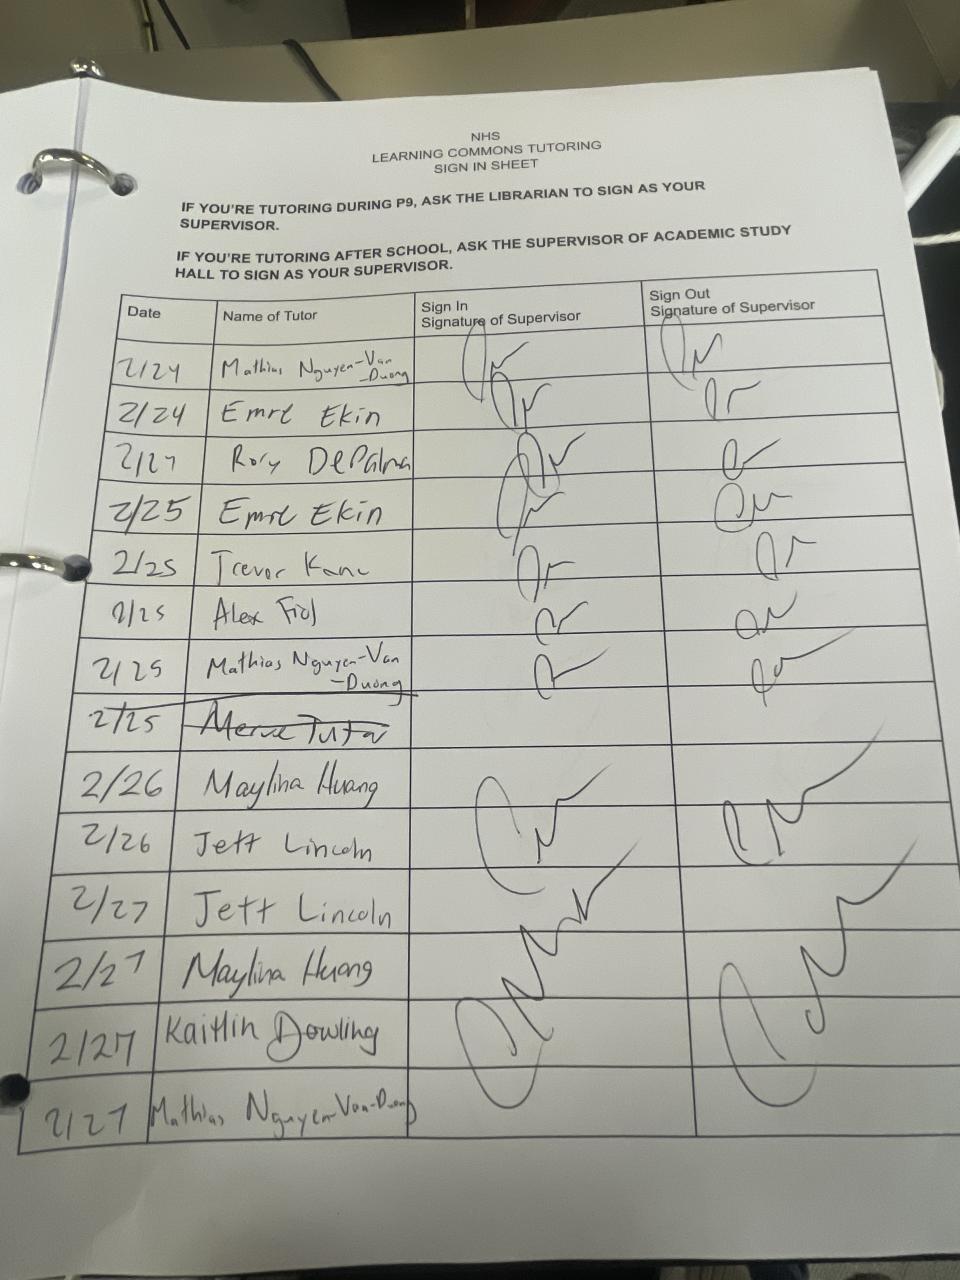 NHS
LEARNING COMMONS TUTORING
SIGN IN SHEET
IF YOU'RE TUTORING DURING P9, ASK THE LIBRARIAN TO SIGN AS YOUR
SUPERVISOR.
IF YOU'RE TUTORING AFTER SCHOOL, ASK THE SUPERVISOR OF ACADEMIC STUDY
HALL TO SIGN AS YOUR SUPERVISOR.
Date Name of Tutor Sign In Signature of Supervisor Sign Out Signature of Supervisor
2/24 Mathias Nguyen-Van
-Duong
2/24 Emre Ekin
2/27 Rory DePalma
2/25 Emre Ekin
2/25 Trevor Kane
2/25 Alex Fiol
2/25 Mathias Nguyen-Van
-Duong
2/25
2/26 Maylina Huang
2/26 Jett Lincoln
2/27 Jett Lincoln
2/27 Maylina Huang
2/27 Kaitlin Dowling
2/27 Mathias Nguyen-Van-Duong